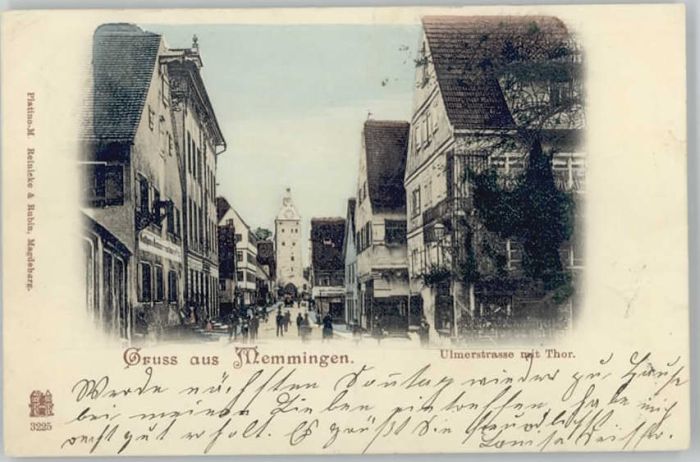 Platino-M. Reinicke & Rubin, Magdeburg.
Gruss aus Memmingen.
Ulmerstrasse mit Thor.
Werde nächsten Sonntag wieder zu Hause
bei meinen Lieben eintreffen, habe mich
recht gut erholt. Es grüßt Sie freundlichst
Louisa
3225